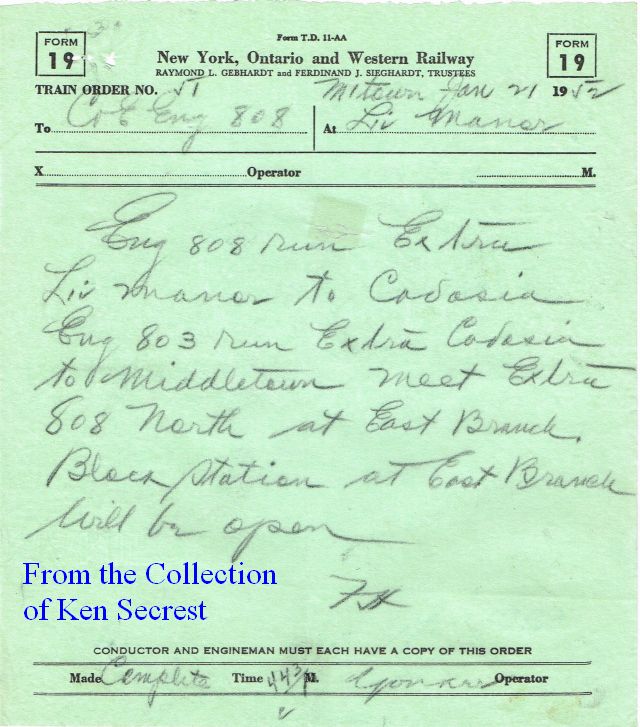 Form T.D. 11-AA
FORM 19
New York, Ontario and Western Railway
FORM 19
RAYMOND L. GEBHARDT and FERDINAND J. SIEGHARDT, TRUSTEES
TRAIN ORDER NO. 51 Mtown Jan 21 1952
To C&E Eng 808 At Liv Manor
X Operator M.
Eng 808 run Extra
Liv Manor to Cadosia
Eng 803 run Extra Cadosia
to Middletown meet Extra
808 North at East Branch.
Block Station at East Branch
will be open
From the Collection
of Ken Secrest
CONDUCTOR AND ENGINEMAN MUST EACH HAVE A COPY OF THIS ORDER
Made Complete Time M. Operator